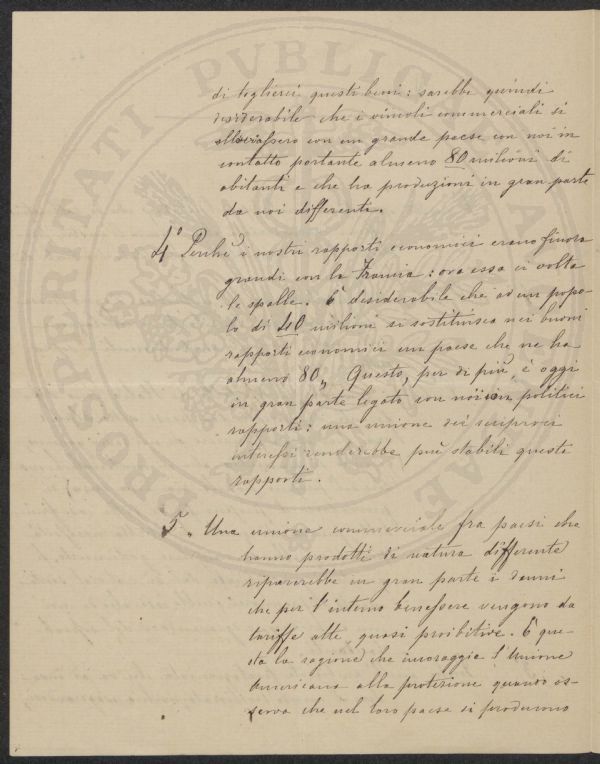 di toglierci questi beni: sarebbe quindi
desiderabile che i vincoli commerciali si
allacciassero con un grande paese con noi in
contatto portante almeno 80 milioni di
abitanti e che ha produzioni in gran parte
da noi differenti.
4° Perchè i nostri rapporti economici erano finora
grandi con la Francia: ora essa ci volta
le spalle. È desiderabile che ad un popo-
lo di 40 milioni si sostituisca nei buoni
rapporti economici un paese che ne ha
almeno 80„ Questo, per di più, è oggi
in gran parte legato con noi in politici
rapporti: una unione dei reciproci
interessi renderebbe più stabili questi
rapporti.
5. Una unione commerciale fra paesi che
hanno prodotti di natura differente
riparerebbe in gran parte i danni
che per l'interno benessere vengono da
tariffe alte, quasi proibitive. È que-
sta la ragione che incoraggia l'Unione
Americana alla protezione quando os-
serva che nel loro paese si producono
PVBLICAE
PROSPERITATI